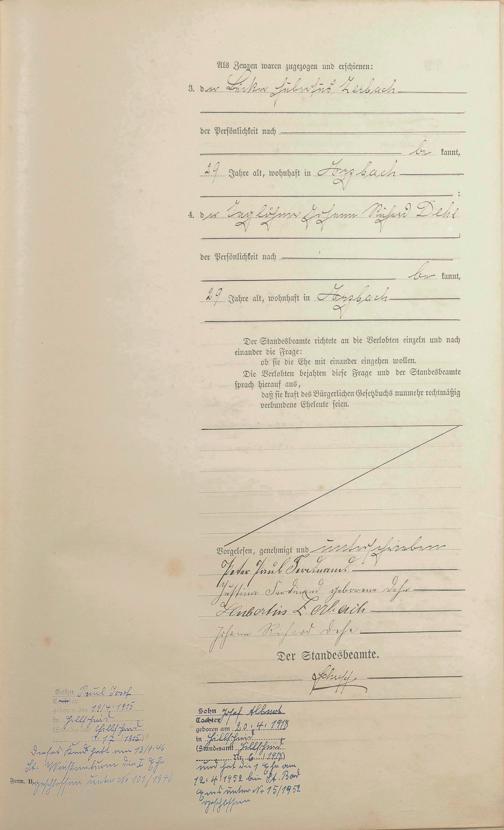 Als Zeugen waren zugezogen und erschienen:
3. der Bäcker Hubertus Zerbach
der Persönlichkeit nach
be kannt,
29 Jahre alt, wohnhaft in
4. der Taglöhner Johann Richard Dehe
der Persönlichkeit nach
be kannt,
29 Jahre alt, wohnhaft in
Der Standesbeamte richtete an die Verlobten einzeln und nach
einander die Frage:
ob sie die Ehe mit einander eingehen wollen.
Die Verlobten bejahten diese Frage und der Standesbeamte
sprach hierauf aus,
daß sie kraft des Bürgerlichen Gesetzbuchs nunmehr rechtmäßig
verbundene Eheleute seien.
Vorgelesen, genehmigt und unterschrieben
Peter Paul Ferdinand
Justina Ferdinand geborene Dehe
Hubertus Zerbach
Johann Richard Dehe
Der Standesbeamte.
Sohn Paul Josef
geboren am 19.4.1915
in Hillscheid
Sohn Josef Albert
Tochter
geboren am 20.4.1913
in Hillscheid
(Standesamt Hillscheid
und hat die 1. Ehe am
12.4.1952 bei St. Bad
Ems unter Nr 15/1952
geschlossen